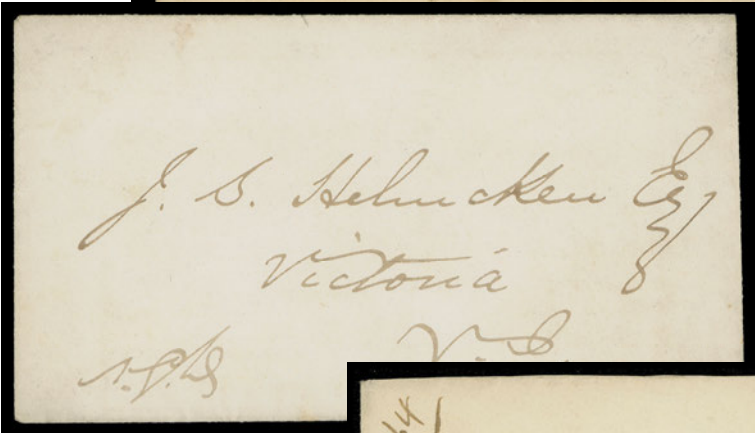 J. S. Helmcken Esq
Victoria
V. I.
64